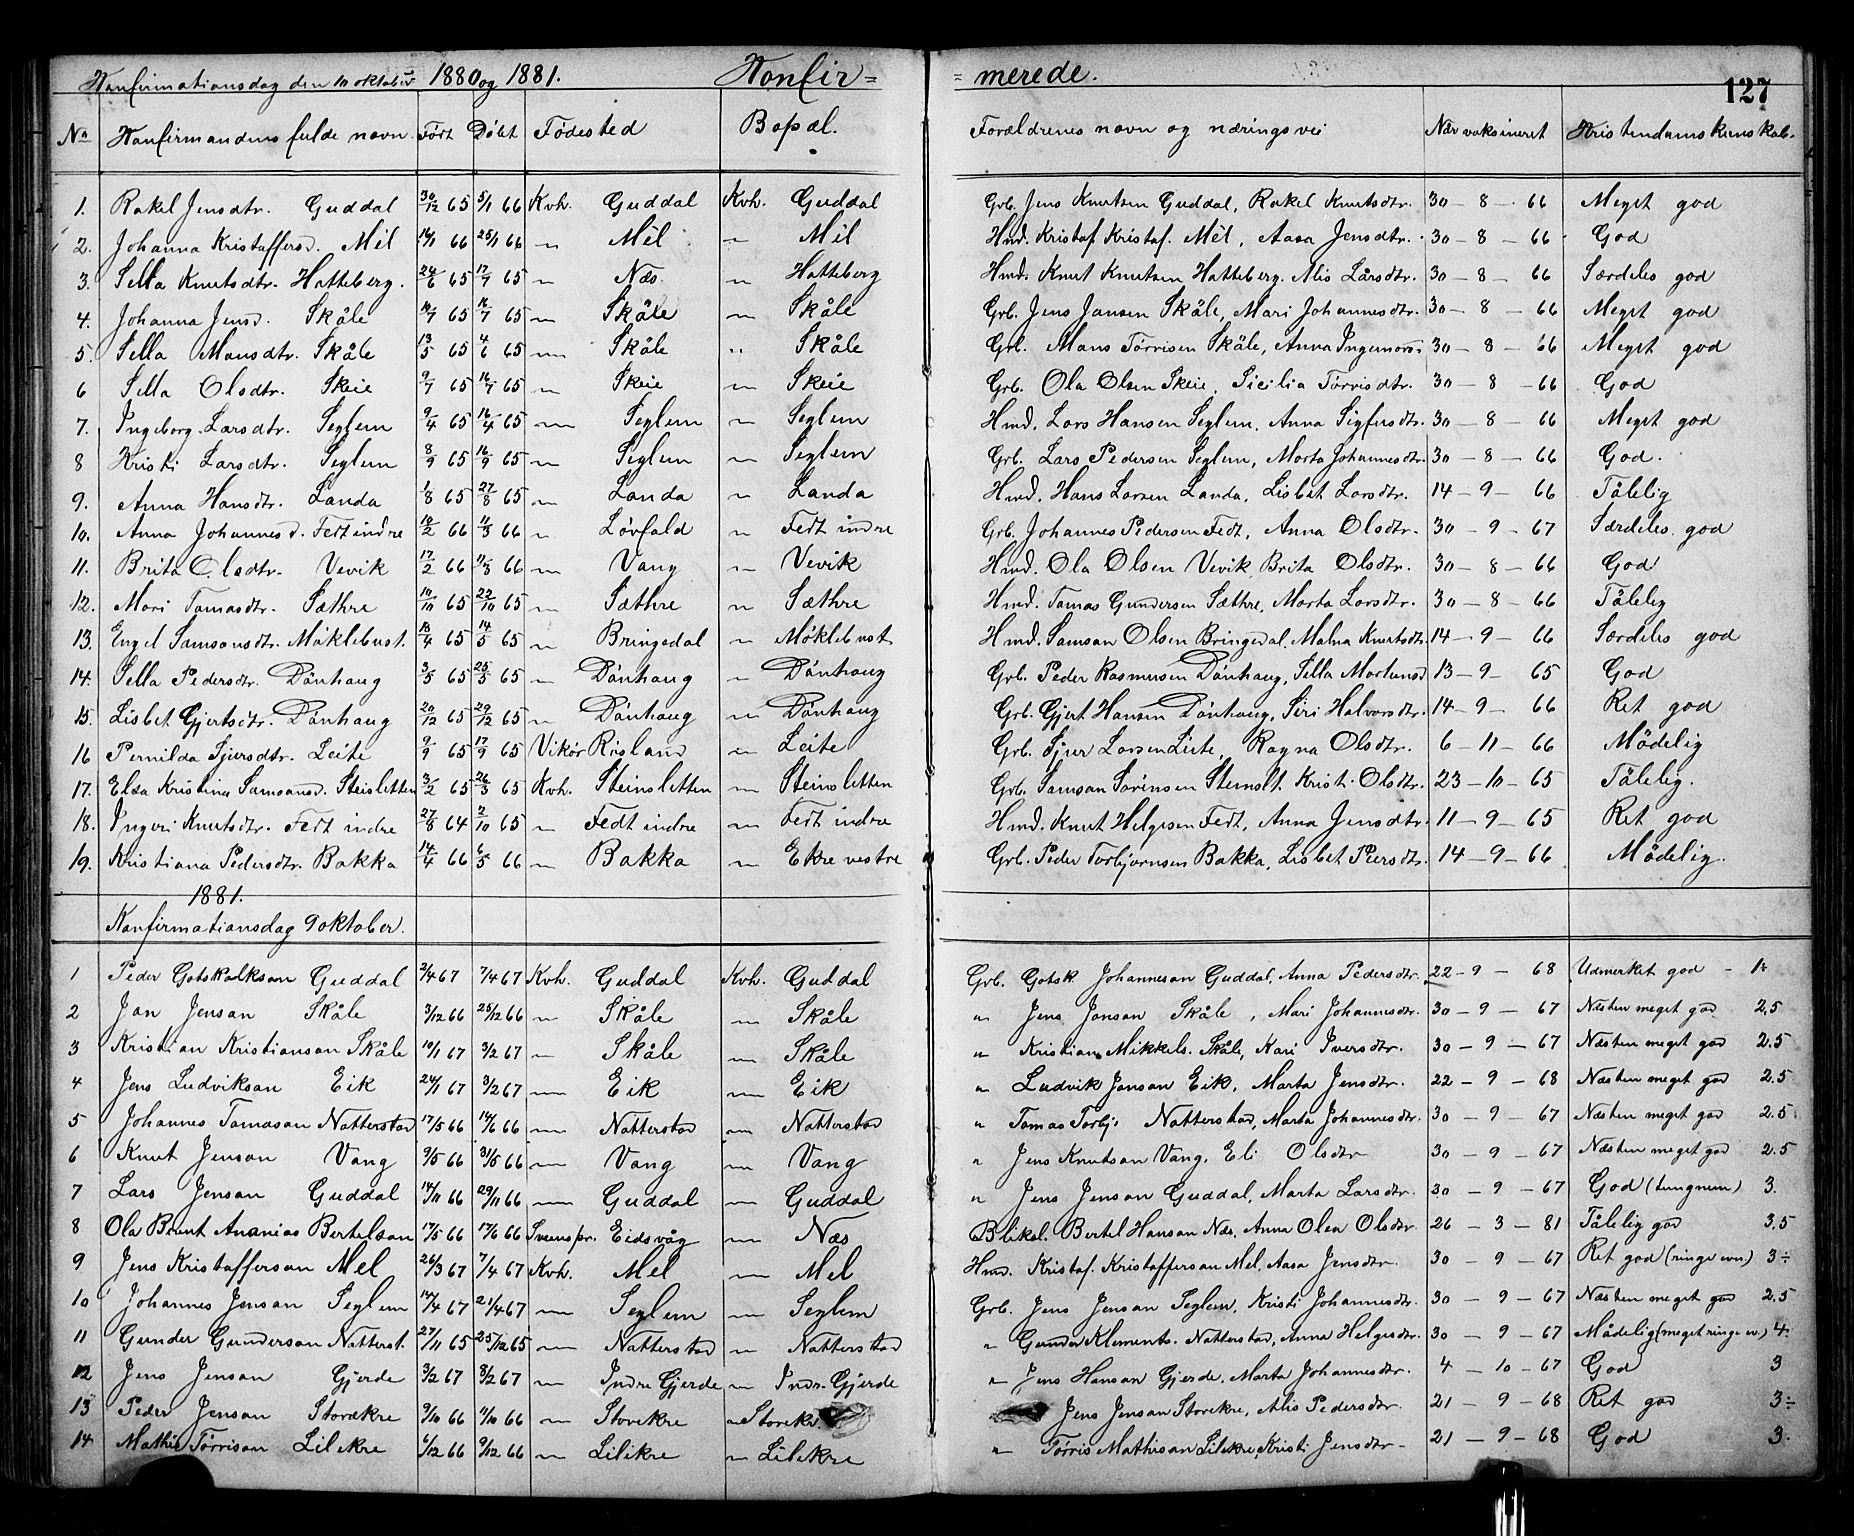 Konfirmationsdag den 10 oktober 1880 og 1881. Konfir= =merede. 127
No Konfirmandens fulde navn. Født Døbt Fødested Bopæl. Forældrenes navn og næringsvei Når vaksineret Kristendomskunskab.
1. Rakel Jensdtr. Guddal 30/12 65 5/1 66 Kvh. Guddal Kvh. Guddal Grb. Jens Knutsen Guddal, Rakel Knutsdtr. 30 - 8 - 66 Meget god
2. Johanna Kristoffersd. Mel 14/1 66 25/1 66 " Mél " Mél Hmd. Kristof Kristof. Mél, Aasa Jensdtr. 30 - 8 - 66 God
3. Sella Knutsdtr. Hatteberg. 24/6 65 17/7 65 " Næs " Hatteberg Hmd. Knut Knutsen Hatteberg. Alis Larsdtr. 30 - 8 - 66 Særdeles god
4. Johanna Jensd. Skåle 10/7 65 16/7 65 " Skåle " Skåle Grb. Jens Jansen Skåle, Mari Johannesdtr. 30 - 8 - 66 Meget god
5. Sella Monsdtr. Skåle 13/5 65 4/6 65 " Skåle " Skåle Grb. Mons Tørrisen Skåle, Anna Ingemors. 30 - 8 - 66 Meget god
6 Sella Olsdtr. Skeie 9/7 65 16/7 65 " Skeie " Skeie Grb. Ola Olsen Skeie, Sicilia Tørrisdtr. 30 - 8 - 66 God
7. Ingeborg Larsdtr. Seglem 9/4 65 16/4 65 " Seglem " Seglem Hmd. Lars Hansen Seglem, Anna Sigfersdtr. 30 - 8 - 66 Meget god
8 Kristi Larsdtr. Seglem 8/9 65 16/9 65 " Seglem " Seglem Grb. Lars Pedersen Seglem, Marta Johannesdtr. 30 - 8 - 66 God.
9. Anna Hansdtr. Landa 1/8 65 27/8 65 " Landa " Landa Hmd. Hans Larsen Landa, Lisbet Larsdtr. 14 - 9 - 66 Tålelig
10. Anna Johannesd. Fedt indre 10/2 66 11/3 66 " Løvfald " Fedt indre Grb. Johannes Pedersen Fedt, Anna Olsdtr. 30 - 9 - 67 Særdeles god
11. Brita Olsdtr. Vevik 17/2 66 11/3 66 " Vang " Vevik Hmd. Ola Olsen Vevik, Brita Olsdtr. 30 - 8 - 66 God
12. Mari Tomasdtr. Sæthre 10/10 65 22/10 65 " Sæthre " Sæthre Hmd. Tomas Gundersen Sæthre, Marta Larsdtr. 30 - 8 - 66 Tålelig
13. Engel Samsonsdtr. Møklebust. 18/4 65 14/5 65 " Bringedal " Møklebust Hmd. Samson Olsen Bringedal, Malna Knutsdtr. 14 - 9 - 66 Særdeles god
14. Sella Pedersdtr. Dönhaug 3/5 65 25/5 65 " Dönhaug " Dönhaug Grb. Peder Rasmusen Dönhaug, Sella Mortensd 13 - 9 65 God
15. Lisbet Gjertsdtr. Dönhaug 20/12 65 29/12 65 " Dönhaug " Dönhaug Grb. Gjert Hansen Dönhaug, Siri Halvorsdtr. 14 - 9 - 66 Ret god
16 Pernilda Sjursdtr. Leite 9/9 65 17/9 65 Vikör Risland " Leite Grb. Sjur Larsen Leite, Ragna Olsdtr. 6 - 11 - 66 Mådelig
17. Elsa Kristina Samsonsd. Steinsletten 3/2 65 26/3 65 Kvh. Steinsletten " Steinsletten Grb. Samson Sörensen Steinslt. Kristi Olsdtr. 23 - 10 - 65 Tålelig.
18. Ingeri Knutsdtr. Fedt indre 27/8 64 2/10 65 " Fedt indre " Fedt indre Hmd. Knut Helgesen Fedt, Anna Jensdtr. 11 - 9 - 65 Ret god
19. Kristiana Pedersdtr. Bakka 14/4 66 6/5 66 " Bakka " Ekre vestre Grb. Peder Torbjørnsen Bakka, Lisbet Peersdtr. 14 - 9 - 66 Mådelig.
1881.
Konfirmationsdag 9 oktober.
1 Peder Gotskalkson Guddal 2/4 67 7/4 67 Kvh. Guddal Kvh. Guddal Grb. Gotsk. Johanneson Guddal, Anna Pedersdtr. 22 - 9 - 68 Udmerket god - 1.
2 Jon Jenson Skåle 3/12 66 25/12 66 " Skåle " Skåle " Jens Jonson Skåle, Mari Johannesdtr. 30 - 9 - 67 Næsten meget god 2,5
3 Kristian Kristianson Skåle 10/1 67 3/2 67 " Skåle " Skåle " Kristian Mikkels. Skåle, Kari Iversdtr. 30 - 9 - 67 Næsten meget god 2.5
4 Jens Ludvikson Eik 24/1 67 3/2 67 " Eik " Eik " Ludvik Jonson Eik, Marta Jensdtr. 22 - 9 - 68 Næsten meget god 2.5
5 Johannes Tomason Natterstad 17/5 66 14/6 66 " Natterstad " Natterstad " Tomas Torbj. Natterstad, Marta Johannesdtr. 30 - 9 - 67 Næsten meget god 2.5
6 Knut Jenson Vang 9/5 66 31/5 66 " Vang " Vang " Jens Knutson Vang, Eli Olsdtr 30 - 9 - 67 Næsten meget god 2.5
7 Lars Jenson Guddal 14/11 66 29/11 66 " Guddal " Guddal " Jens Jenson Guddal, Marta Larsdtr. 30 - 9 - 67 God (tungnem) 3.
8 Ola Berent Ananias Bertelson 17/5 66 17/6 66 Sveenspr. Eidsvåg " Næs Bliksl. Bertel Hanson Næs, Anna Olea Olsdtr 26 - 3 - 81 Tålelig god 3.5
9 Jens Kristofferson Mel 26/3 67 7/4 67 Kvh. Mel " Mel Hmd. Kristof. Kristofferson Mel, Aasa Jensdtr. 30 - 9 - 67 Ret god (ringe evn.) 3÷
10 Johannes Jenson Seglem 14/4 67 21/4 67 " Seglem " Seglem Grb. Jens Jenson Seglem, Kristi Johannesdtr. 30 - 9 - 67 Næsten meget god 2.5
11 Gunder Gunderson Natterst. 27/11 65 25/12 65 " Natterstad " Natterstad " Gunder Klements. Natterstad, Anna Helgesdtr. 30 - 9 - 67 Mådelig (meget ringe ev.) 4.
12 Jens Jenson Gjerde 3/2 67 8/2 67 " Indre Gjerde " Indr. Gjerde " Jens Hanson Gjerde, Marta Johannesdtr. 4 - 10 - 67 God 3
13 Peder Jenson Storekre 9/10 66 11/10 66 " Storekre " Storekr Jens Jenson Storekre, Alis Pedersdtr. 21 - 9 - 68 Ret god 3÷
14. Mathis Tørrison Lilekre 6/12 66 9/12 66 " Lilekre " Lilekre " Tørris Mathison Lilekre, Kristi Jensdtr - 21 - 9 - 68 God 3.